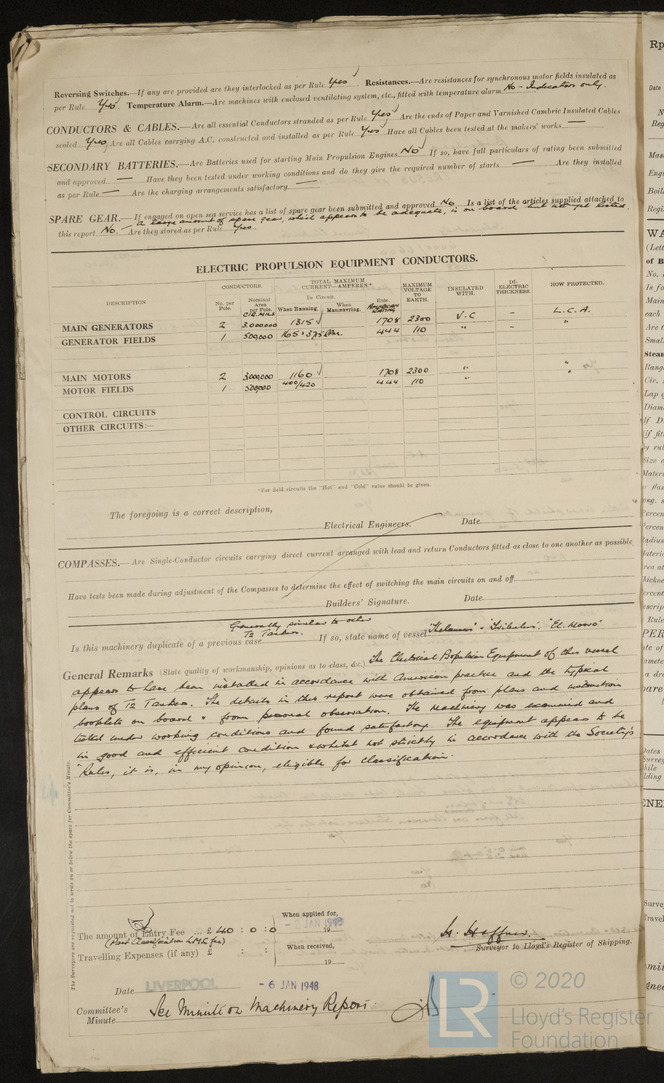 Reversing Switches.—If any are provided are they interlocked as per Rule Yes Resistances.—Are resistances for synchronous motor fields insulated as
per Rule Yes Temperature Alarm.—Are machines with enclosed ventilating system, etc., fitted with temperature alarm No - Indicators only.
CONDUCTORS & CABLES.—Are all essential Conductors stranded as per Rule Yes Are the ends of Paper and Varnished Cambric Insulated Cables
sealed Yes, Are all Cables carrying A.C. constructed and installed as per Rule Yes Have all Cables been tested at the makers' works —
SECONDARY BATTERIES.—Are Batteries used for starting Main Propulsion Engines No If so, have full particulars of rating been submitted
and approved — Have they been tested under working conditions and do they give the required number of starts — Are they installed
as per Rule — Are the charging arrangements satisfactory —
SPARE GEAR.—If engaged on open sea service has a list of spare gear been submitted and approved No. Is a list of the articles supplied attached to
A large amount of spare gear, which appears to be adequate, is on board but not yet listed.
this report No. Are they stored as per Rule Yes.
ELECTRIC PROPULSION EQUIPMENT CONDUCTORS.
DESCRIPTION CONDUCTORS. TOTAL MAXIMUM CURRENT—AMPERES*. MAXIMUM VOLTAGE TO EARTH. INSULATED WITH. DI-ELECTRIC THICKNESS. HOW PROTECTED.
No. per Pole. Nominal Area per Pole. In Circuit. When Running. When Manœuvring. Rule.
MAIN GENERATORS 2 3,000,000 1315 1708 2300 V.C - L.C.A.
GENERATOR FIELDS 1 500,000 444 110 " - "
MAIN MOTORS 2 3,000,000 1160 1708 2300 " "
MOTOR FIELDS 1 500,000 400/420 444 110 " "
CONTROL CIRCUITS
OTHER CIRCUITS:—
*For field circuits the "Hot" and "Cold" value should be given.
The foregoing is a correct description,
Electrical Engineers. Date
COMPASSES.—Are Single-Conductor circuits carrying direct current arranged with lead and return Conductors fitted as close to one another as possible
Have tests been made during adjustment of the Compasses to determine the effect of switching the main circuits on and off
Builders' Signature. Date
Generally similar to other
T2 Tankers.
Is this machinery duplicate of a previous case If so, state name of vessel
General Remarks (State quality of workmanship, opinions as to class, &c.) The Electrical Propulsion Equipment of this vessel
appears to have been installed in accordance with American practice and the typical
plans of T2 Tankers. The details in this report were obtained from plans and instruction
booklets on board & from personal observation. The machinery was examined and
tested under working conditions and found satisfactory. The equipment appears to be
in good and efficient condition & whilst not strictly in accordance with the Society's
Rules, it is, in my opinion, eligible for classification.
The Surveyors are requested not to write on or below the space for Committee's Minute.
The amount of Entry Fee ... £ 40 : 0 : 0
Travelling Expenses (if any) £ : :
When applied for,
JAN 1948
19
When received,
19
Surveyor to Lloyd's Register of Shipping.
Date LIVERPOOL - 6 JAN 1948
Committee's
Minute See Minute on Machinery Report.
LR
© 2020
Lloyd's Register
Foundation